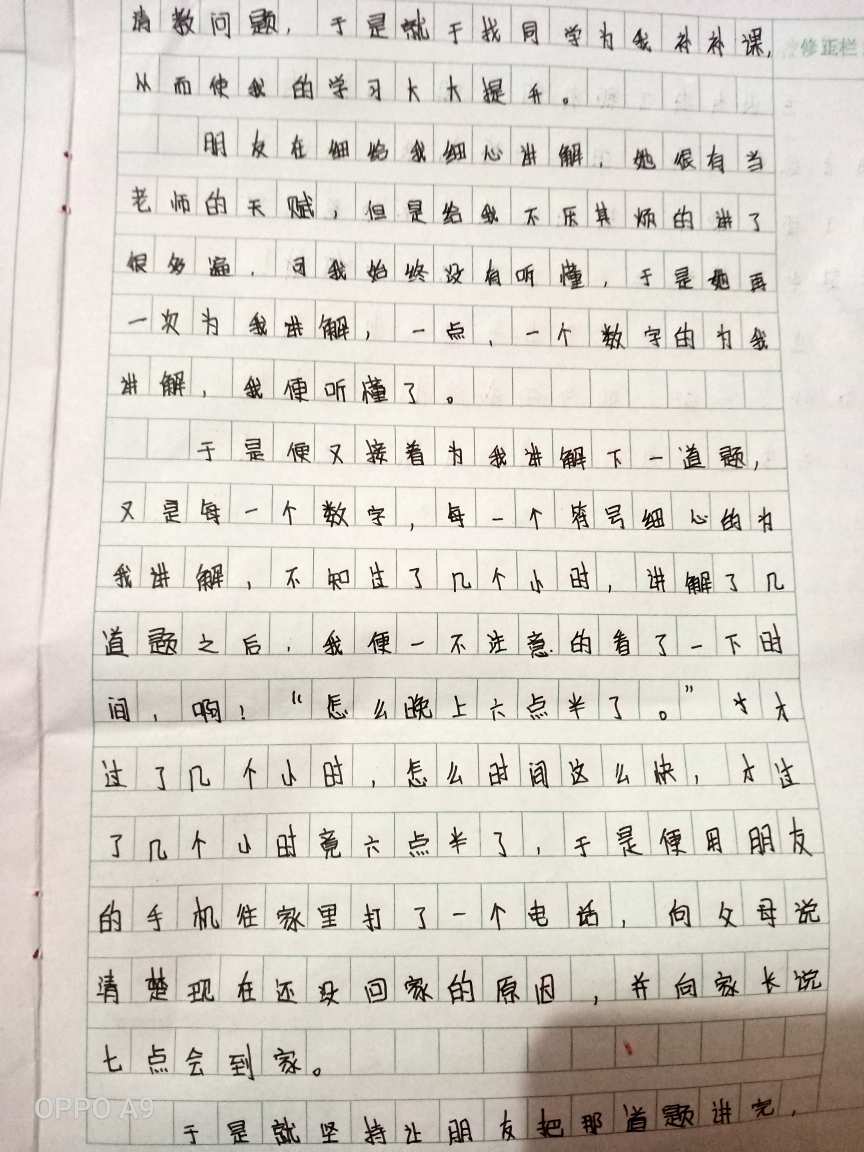 请教问题，于是就于找同学为我补补课，
修正栏
从而使我的学习大大提升。
朋友在细给我细心讲解，她很有当
老师的天赋，但是给我不厌其烦的讲了
很多遍，可我始终没有听懂，于是她再
一次为我讲解，一点，一个数字的为我
讲解，我便听懂了。
于是便又接着为我讲解下一道题，
又是每一个数字，每一个符号细心的为
我讲解，不知过了几个小时，讲解了几
道题之后，我便一不注意的看了一下时
间，啊！“怎么晚上六点半了。”才
过了几个小时，怎么时间这么快，才过
了几个小时竟六点半了，于是便用朋友
的手机往家里打了一个电话，向父母说
清楚现在还没回家的原因，并向家长说
七点会到家。
于是就坚持让朋友把那道题讲完，
OPPO A9